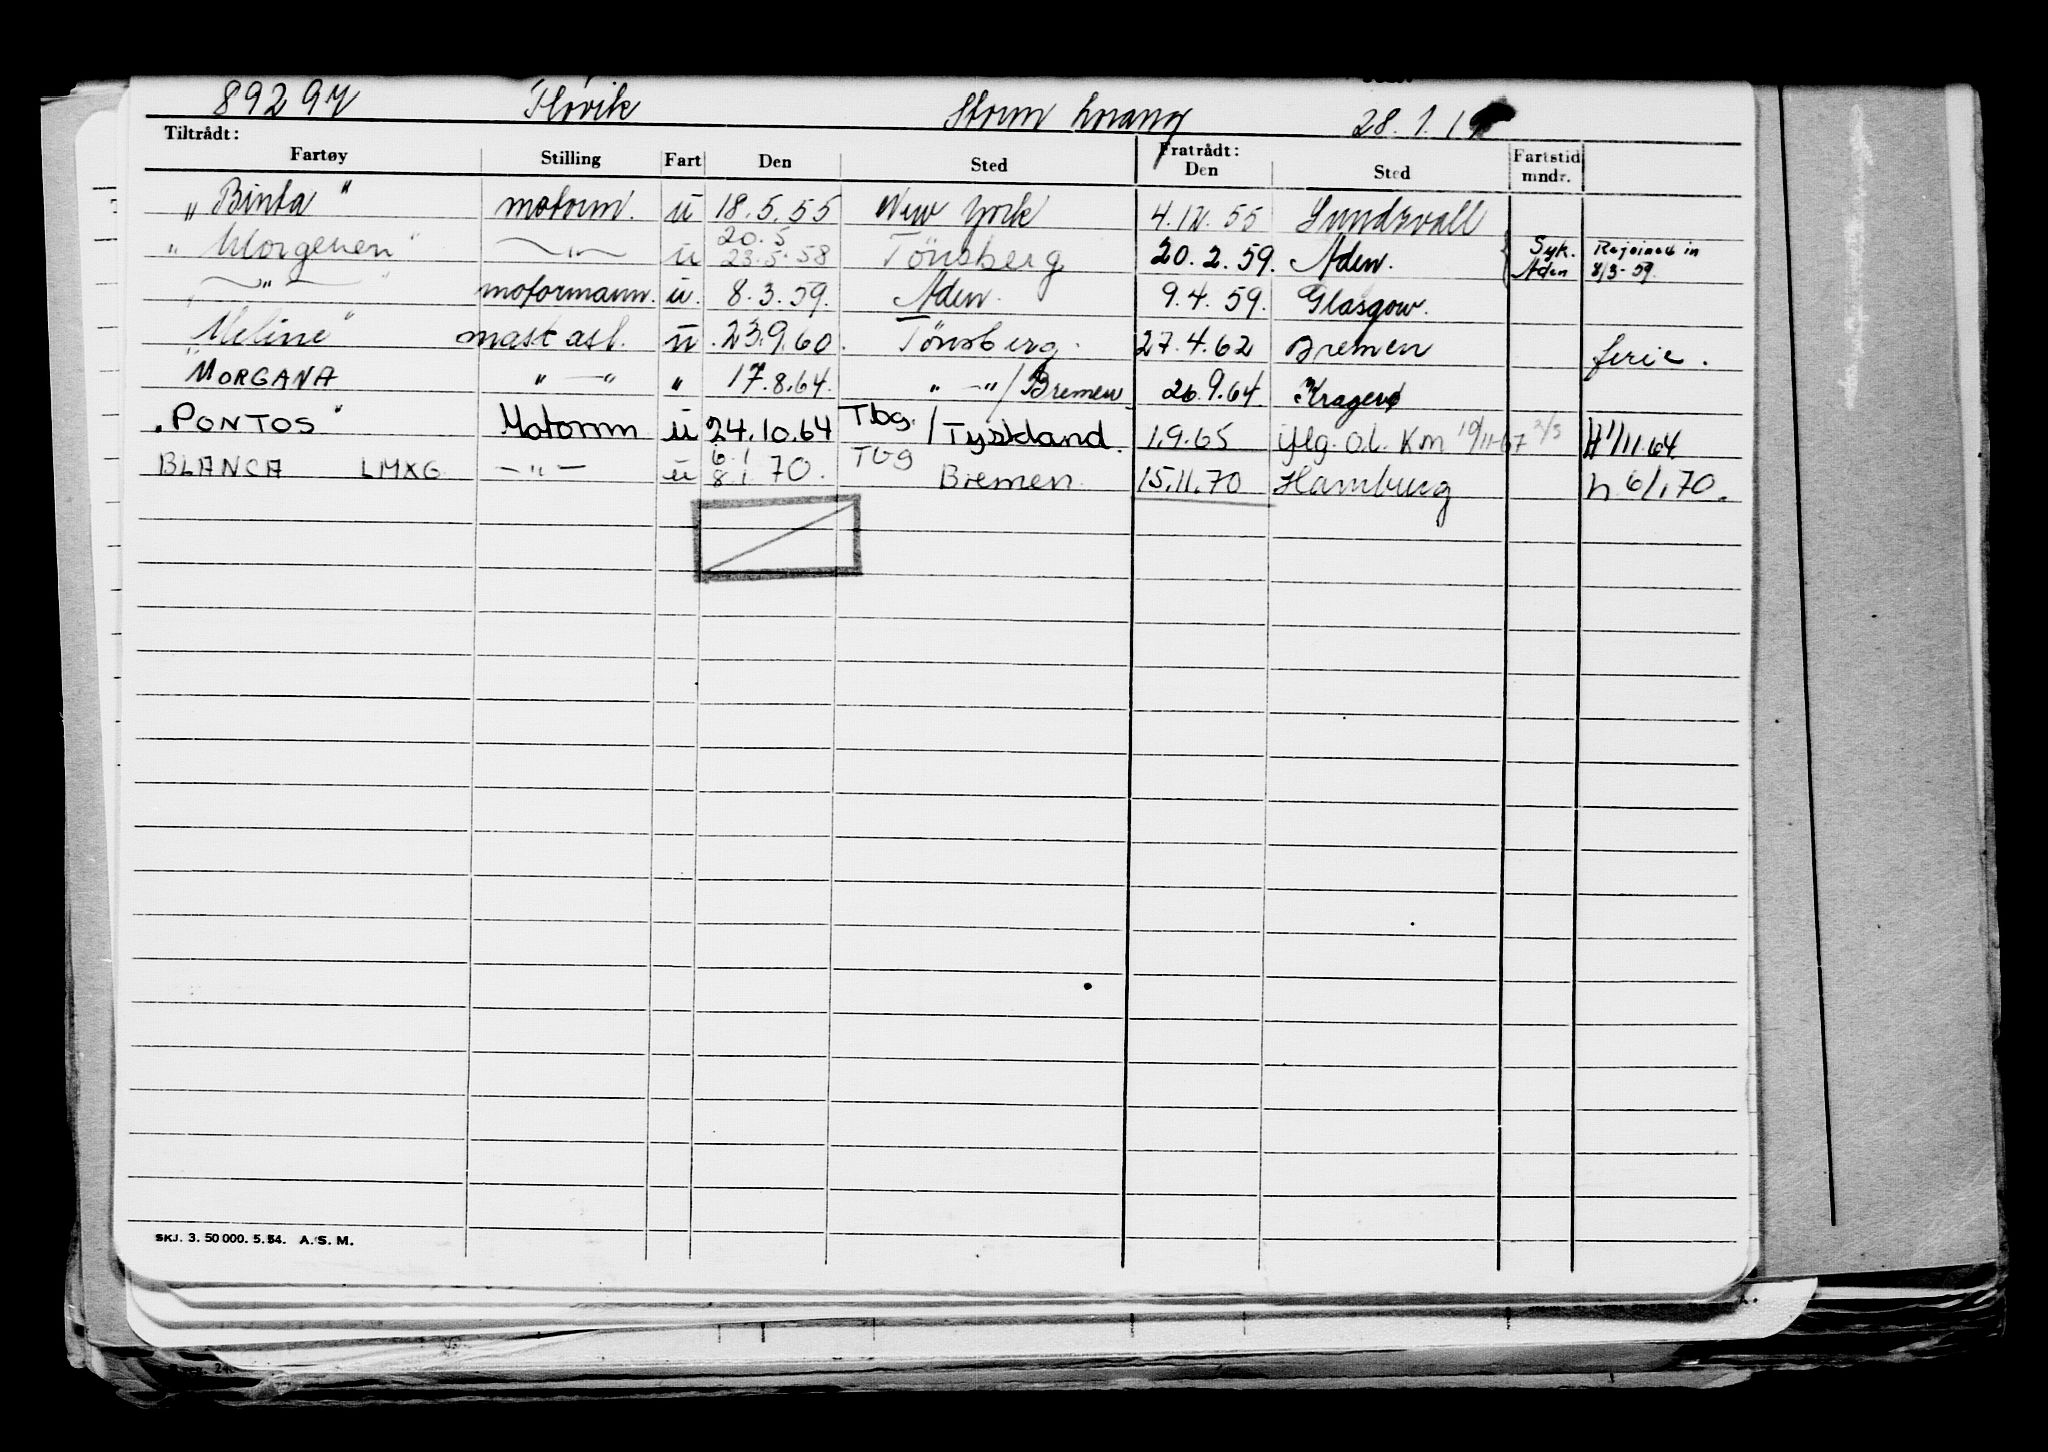 89297 Fløvik Storm 28.1.1
Tiltrådt: Fratrådt:
Fartøy Stilling Fart Den Sted Den Sted Fartstid mndr.
„Binta" motorm. u 18.5.55 New York 4.12.55 Sundsvall
20.5
„Morgenen" —„— u 23.5.58 Tönsberg 20.2.59. Aden. Syk. Aden Rejoined in 8/3-59.
—„— motormann. u. 8.3.59. Aden. 9.4.59. Glasgow.
Meline" mask ass. u 23.9.60. Tönsberg. 27.4.62 Bremen ferie.
"MORGANA „—„ „ 17.8.64. „—„/Bremen 26.9.64. Kragerø
„PONTOS" Motorm u 24.10.64 Tbg./Tyskland. 1.9.65 Km 10/11-67 2/3 H 1/11.64
6.1
BLANCA LMXG —„— u 8.1.70. TBG Bremen. 15.11.70 Hamburg h 6/1.70.
SKJ. 3. 50 000. 5.54. A.S.M.